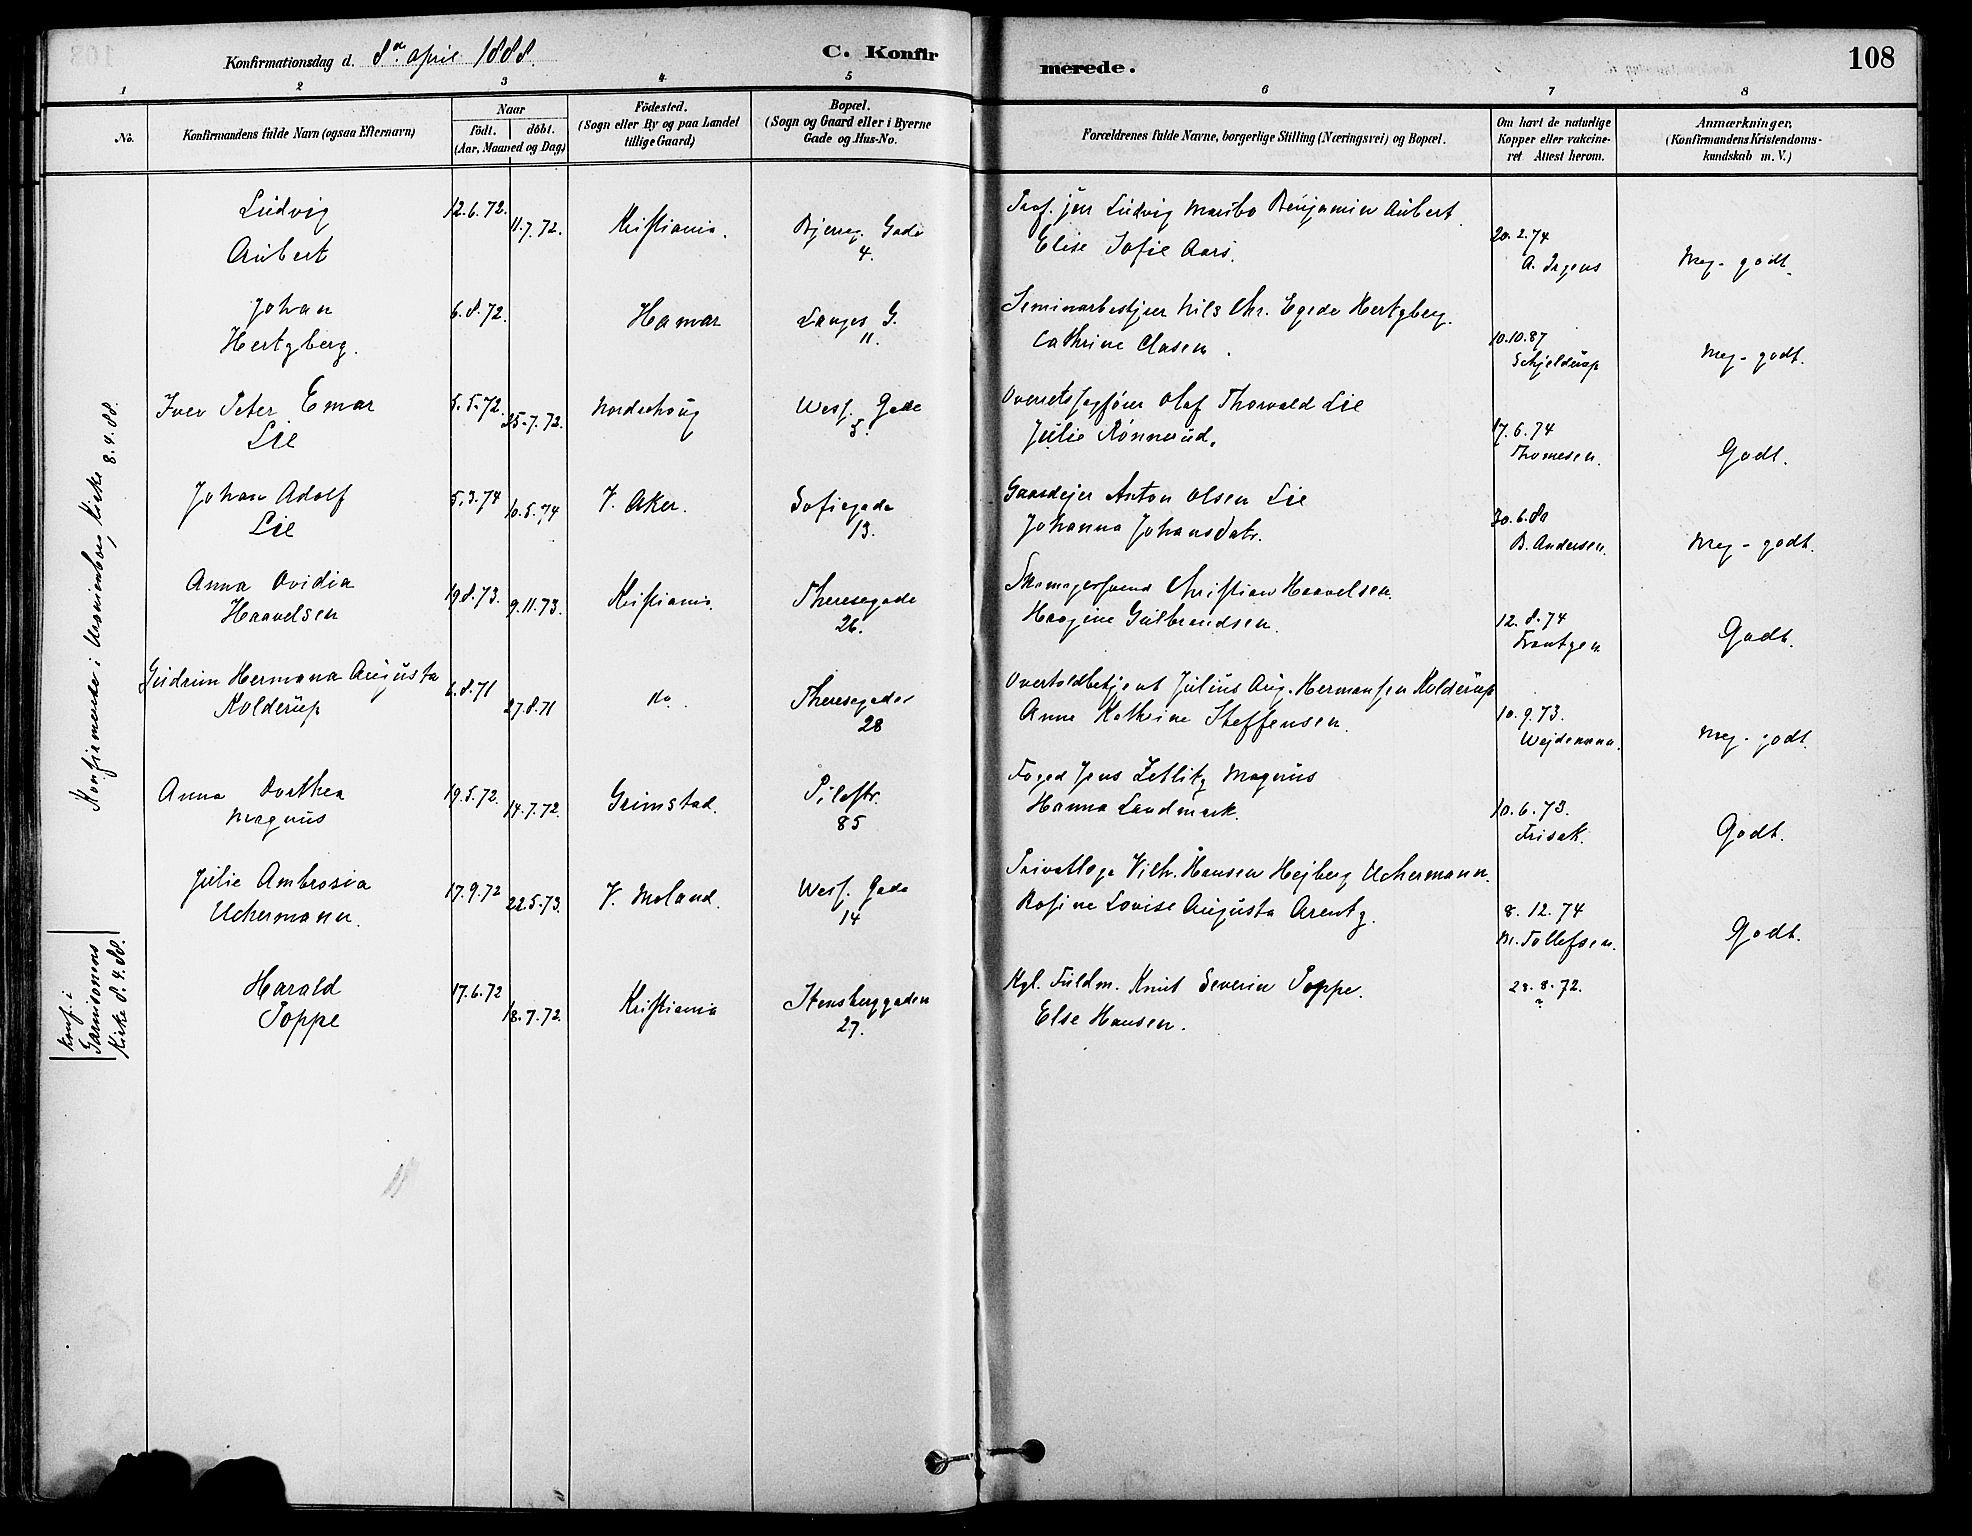 Konfirmationsdag d. 8de april 1888.
C. Konfirmerede.
108
1 2 3 4 5 6 7 8
No.
Konfirmandens fulde Navn (ogsaa Efternavn)
Naar
födt. döbt.
(Aar, Maaned og Dag)
Födested.
(Sogn eller By og paa Landet
tillige Gaard)
Bopæl.
(Sogn og Gaard eller i Byerne
Gade og Hus-No.
Forældrenes fulde Navne, borgerlige Stilling (Næringsvei) og Bopæl.
Om havt de naturlige
Kopper eller vakcine-
ret. Attest herom.
Anmærkninger,
(Konfirmandens Kristendoms-
kundskab m. V.)
Ludvig 12.6.72. 11.7.72. Kristiania. Bjerreg. Gade Prof. jur Ludvig Maribo Benjamin Aubert 20.2.74
Aubert 4. Elise Sofie Aars. Meg. godt.
Johan 6.8.72. Hamar Langes G. Seminarbestyrer Nils Chr. Egede Hertzberg. 10.10.87
Hertzberg. 11. Cathrine Clasen. Schjelderup Meg. godt.
Iver Peter Emar 5.5.72. 25.7.72. Norderhoug Wess. Gade Overretssagfører Olaf Thorvald Lie 17.6.74
Lie 5. Julie Rønnerud. Thomesen. Godt.
Johan Adolf 5.3.74 10.5.74 V. Aker. Sofiegade Gaardejer Anton Olsen Lie
Lie 13. Johanna Johansdatr. B. Andersen. Meg. godt.
Anna Ovidia 19.8.73. 9.11.73. Kristiania. Theresegade Skomagersvend Christian Haavelsen. 12.8.74
Haavelsen 26. Gulbrandsen. Frantzen Godt.
Gudrun Hermana Augusta 6.8.71 27.8.71 do. Theresegade Overtoldbetjent Julius Aug. Hermansen Kolderup 10.9.73.
Kolderup 28 Anne Kathrine Steffensen. Wejdemann. Meg. godt.
Anna Dorthea 19.5.72. 14.7.72. Grimstad. Pilestr. Foged Jens Zetlitz Magnus 10.6.73.
Magnus 85 Hanna Landmark. Frisak. Godt.
Julie Ambrosia 17.9.72 22.5.73. V. Moland. Wess. Gade Privatlæge Vilh. Hansen Hejberg Uchermann. 8.12.74
Uchermann. 14 Rosine Lovise Augusta Arentz. M. Tollefsen. Godt.
Harald 17.6.72 18.7.72. Kristiania Stensberggaden Kgl. Fuldm. Knut Severin Poppe. 28.8.72.
Poppe 27. Else Hansen.
Konfirmerede i Uranienborg Kirke 8.4.88.
Konf. i
Garnisonens
Kirke 8.4.88.